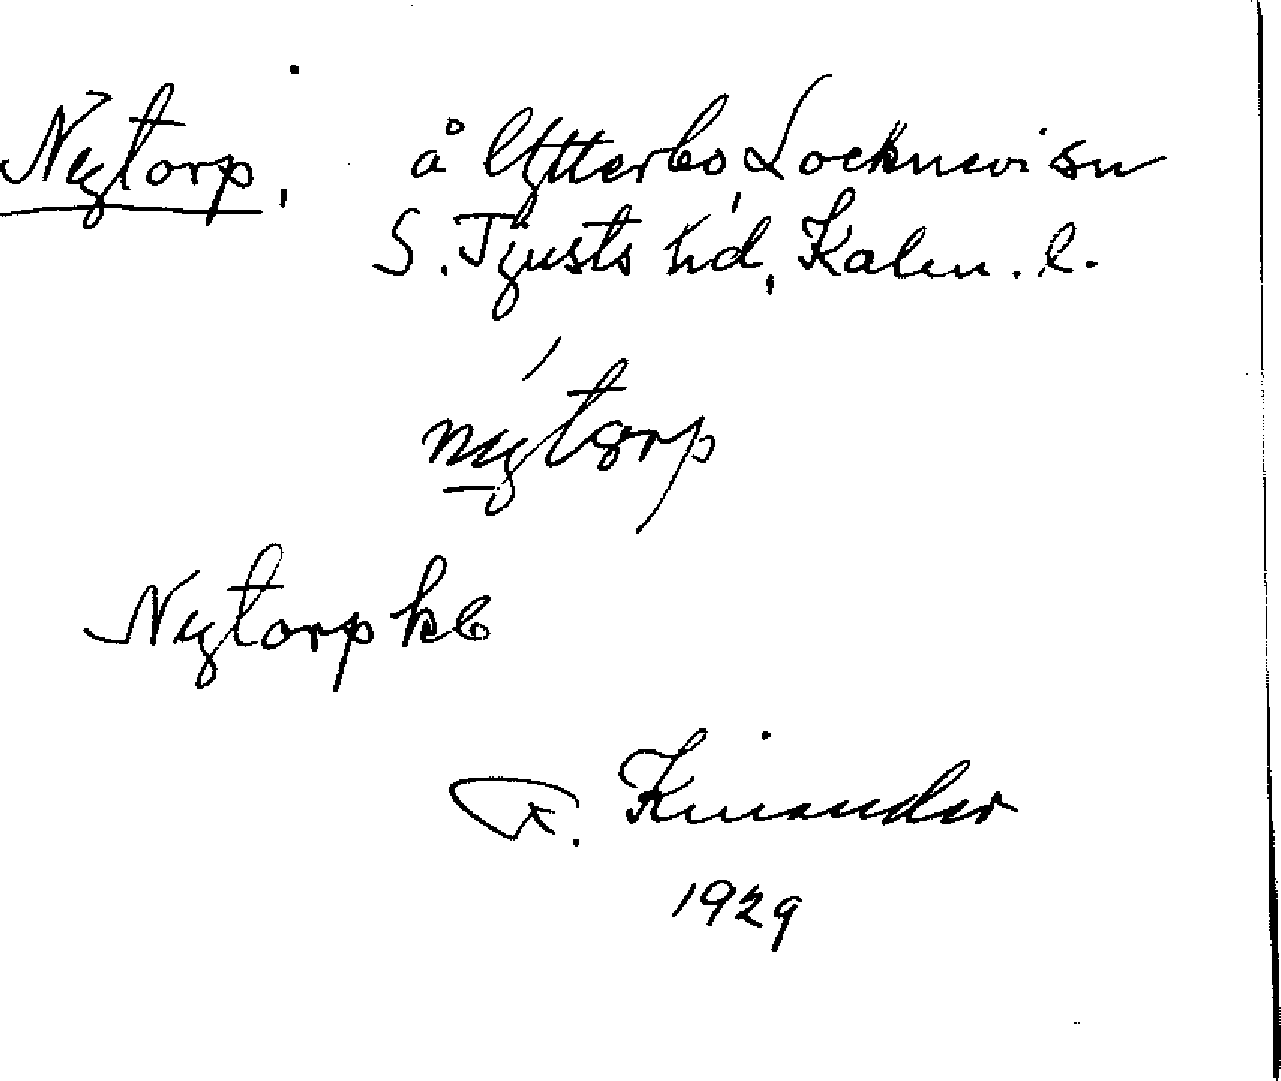 Nytorp. å Ytterbo, Locknevi sn
S. Tjusts hd, Kalm. l.
nýtorp
Nytorp kb
F. Kinander
1929